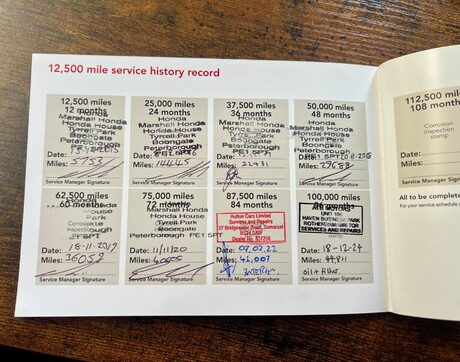 12,500 mile service history record
12,500 miles
12 months
Honda
Marshall Honda
Honda House
Tyrrell Park
Boongate
Peterborough
Date:
Miles: 5753
Service Manager Signature
25,000 miles
24 months
Honda
Marshall Honda
Honda House
Tyrrell Park
Boongate
Peterborough
Date:
Miles: 14445
Service Manager Signature
37,500 miles
36 months
Honda
Marshall Honda
Honda House
Tyrrell Park
Boongate
Peterborough
Date:
Miles: 22431
Service Manager Signature
50,000 miles
48 months
Honda
Marshall Honda
Honda House
Tyrrell Park
Boongate
Peterborough
Date:
Miles: 29688
Service Manager Signature
112,500 miles
108 months
Corrosion
inspection
stamp.
Date:
Miles:
Service Manager Signature
All to be complete
For your service schedule
62,500 miles
60 months
Honda
Marshall Honda
Honda House
Boongate
Peterborough
Date: 18-11-2019
Miles: 36052
Service Manager Signature
75,000 miles
72 months
Honda
Marshall Honda
Honda House
Tyrrell Park
Boongate
Peterborough PE1 5PT
Date: 11/11/20
Miles:
Service Manager Signature
87,500 miles
84 months
Hutton Cars Limited
Services and Repairs
27 Bridgwater Road, Somerset
Date: 09.03.22
Miles: 42,007
Service Manager Signature
100,000 miles
96 months
HAVEN BUSINESS PARK
SERVICES AND REPAIRS
Date: 18-12-24
Miles: 44811
oil + filter
Service Manager Signature